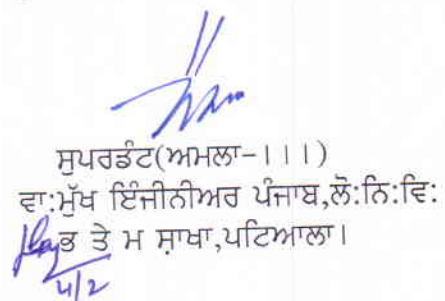 ਸੁਪਰਡੰਟ(ਅਮਲਾ-।।।)
ਵਾ:ਮੁੱਖ ਇੰਜੀਨੀਅਰ ਪੰਜਾਬ,ਲੋ:ਨਿ:ਵਿ:
ਭ ਤੇ ਮ ਸ਼ਾਖਾ,ਪਟਿਆਲਾ।
4/2